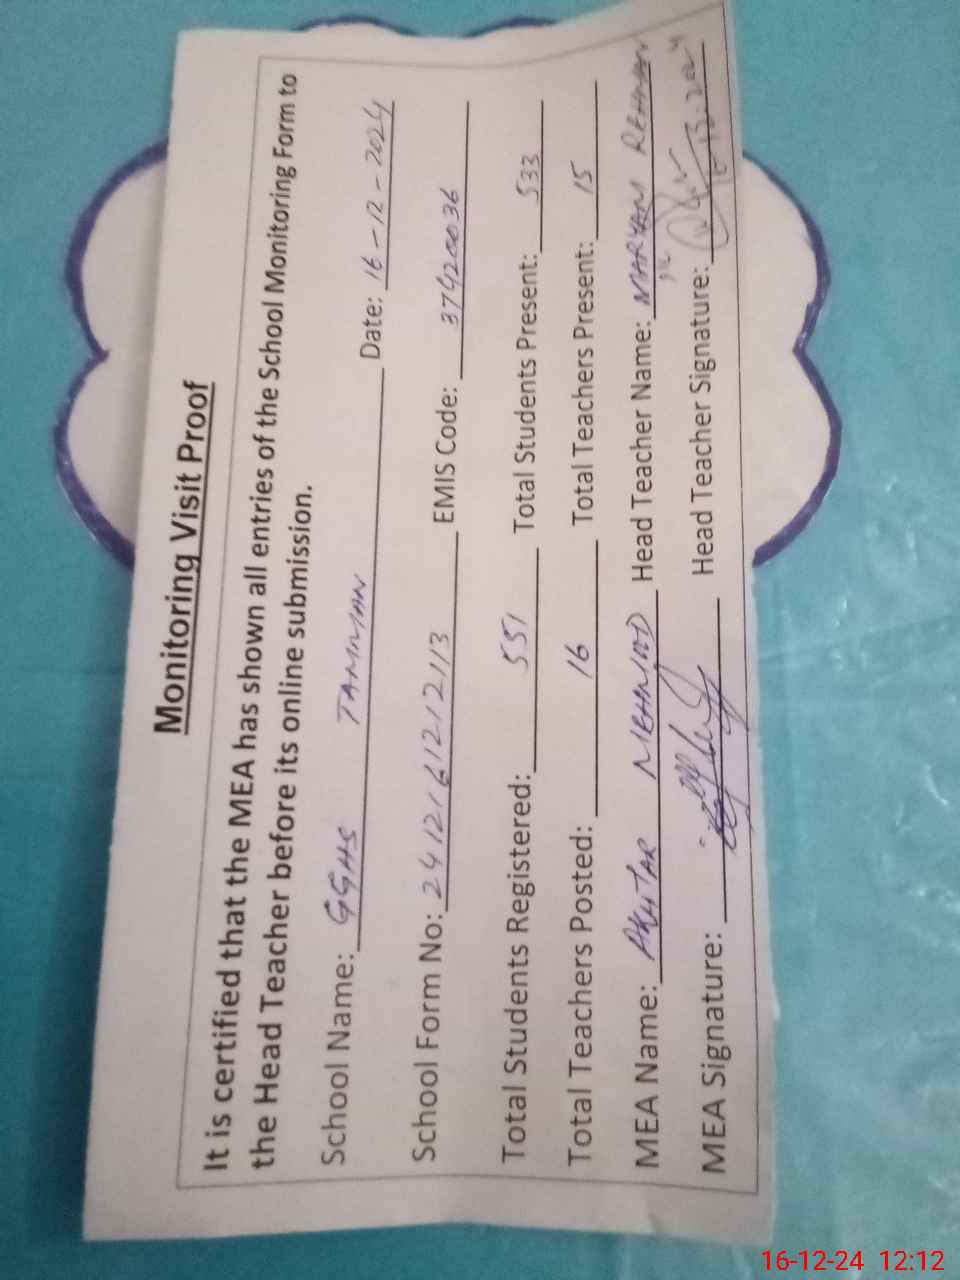 Monitoring Visit Proof
It is certified that the MEA has shown all entries of the School Monitoring Form to
the Head Teacher before its online submission.
School Name: GGHS TAMMAN Date: 16-12-2024
School Form No: 2412161212113 EMIS Code: 37420036
Total Students Registered: 551 Total Students Present: 533
Total Teachers Posted: 16 Total Teachers Present: 15
MEA Name: AKHTAR MEHMOOD Head Teacher Name: MARYAM REHMAN
MEA Signature: Head Teacher Signature:
16-12-24 12:12